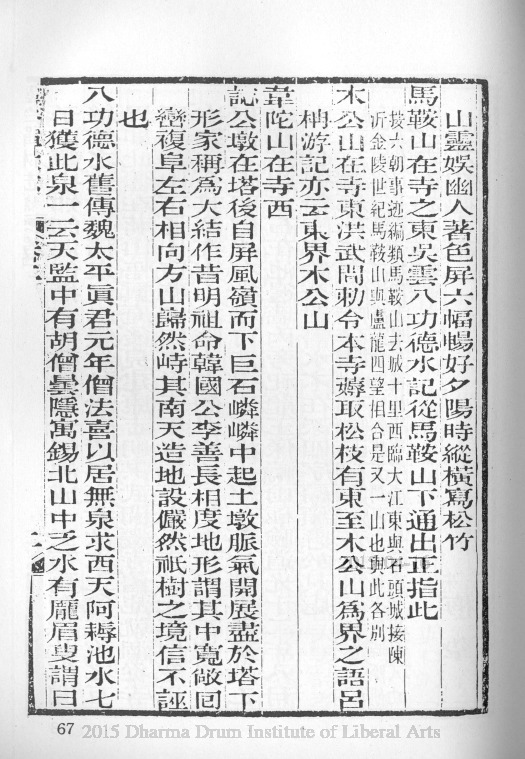 山靈娛幽人著色屏六幅暢好夕陽時縱橫寫松竹
馬鞍山在寺之東吳雲八功德水記從馬鞍山下通出正指此
按六朝事迹編類馬鞍山去城十里西臨大江東與石頭城接陳
沂金陵世紀馬鞍山與盧龍四望相合是又一山也與此各別
木公山在寺東洪武間勅令本寺薅取松枝有東至木公山爲界之語呂
柟游記亦云東界木公山
韋陀山在寺西
誌公墩在塔後自屏風嶺而下巨石嶙嶙中起土墩脈氣開展盡於塔下
形家稱爲大結作昔明祖命韓國公李善長相度地形謂其中寬敞回
巒複阜左右相向方山巋然峙其南天造地設儼然祇樹之境信不誣
也
八功德水舊傳魏太平眞君元年僧法喜以居無泉求西天阿耨池水七
日獲此泉一云天監中有胡僧曇隱寓錫北山中乏水有龐眉叟謂曰
67 2015 Dharma Drum Institute of Liberal Arts